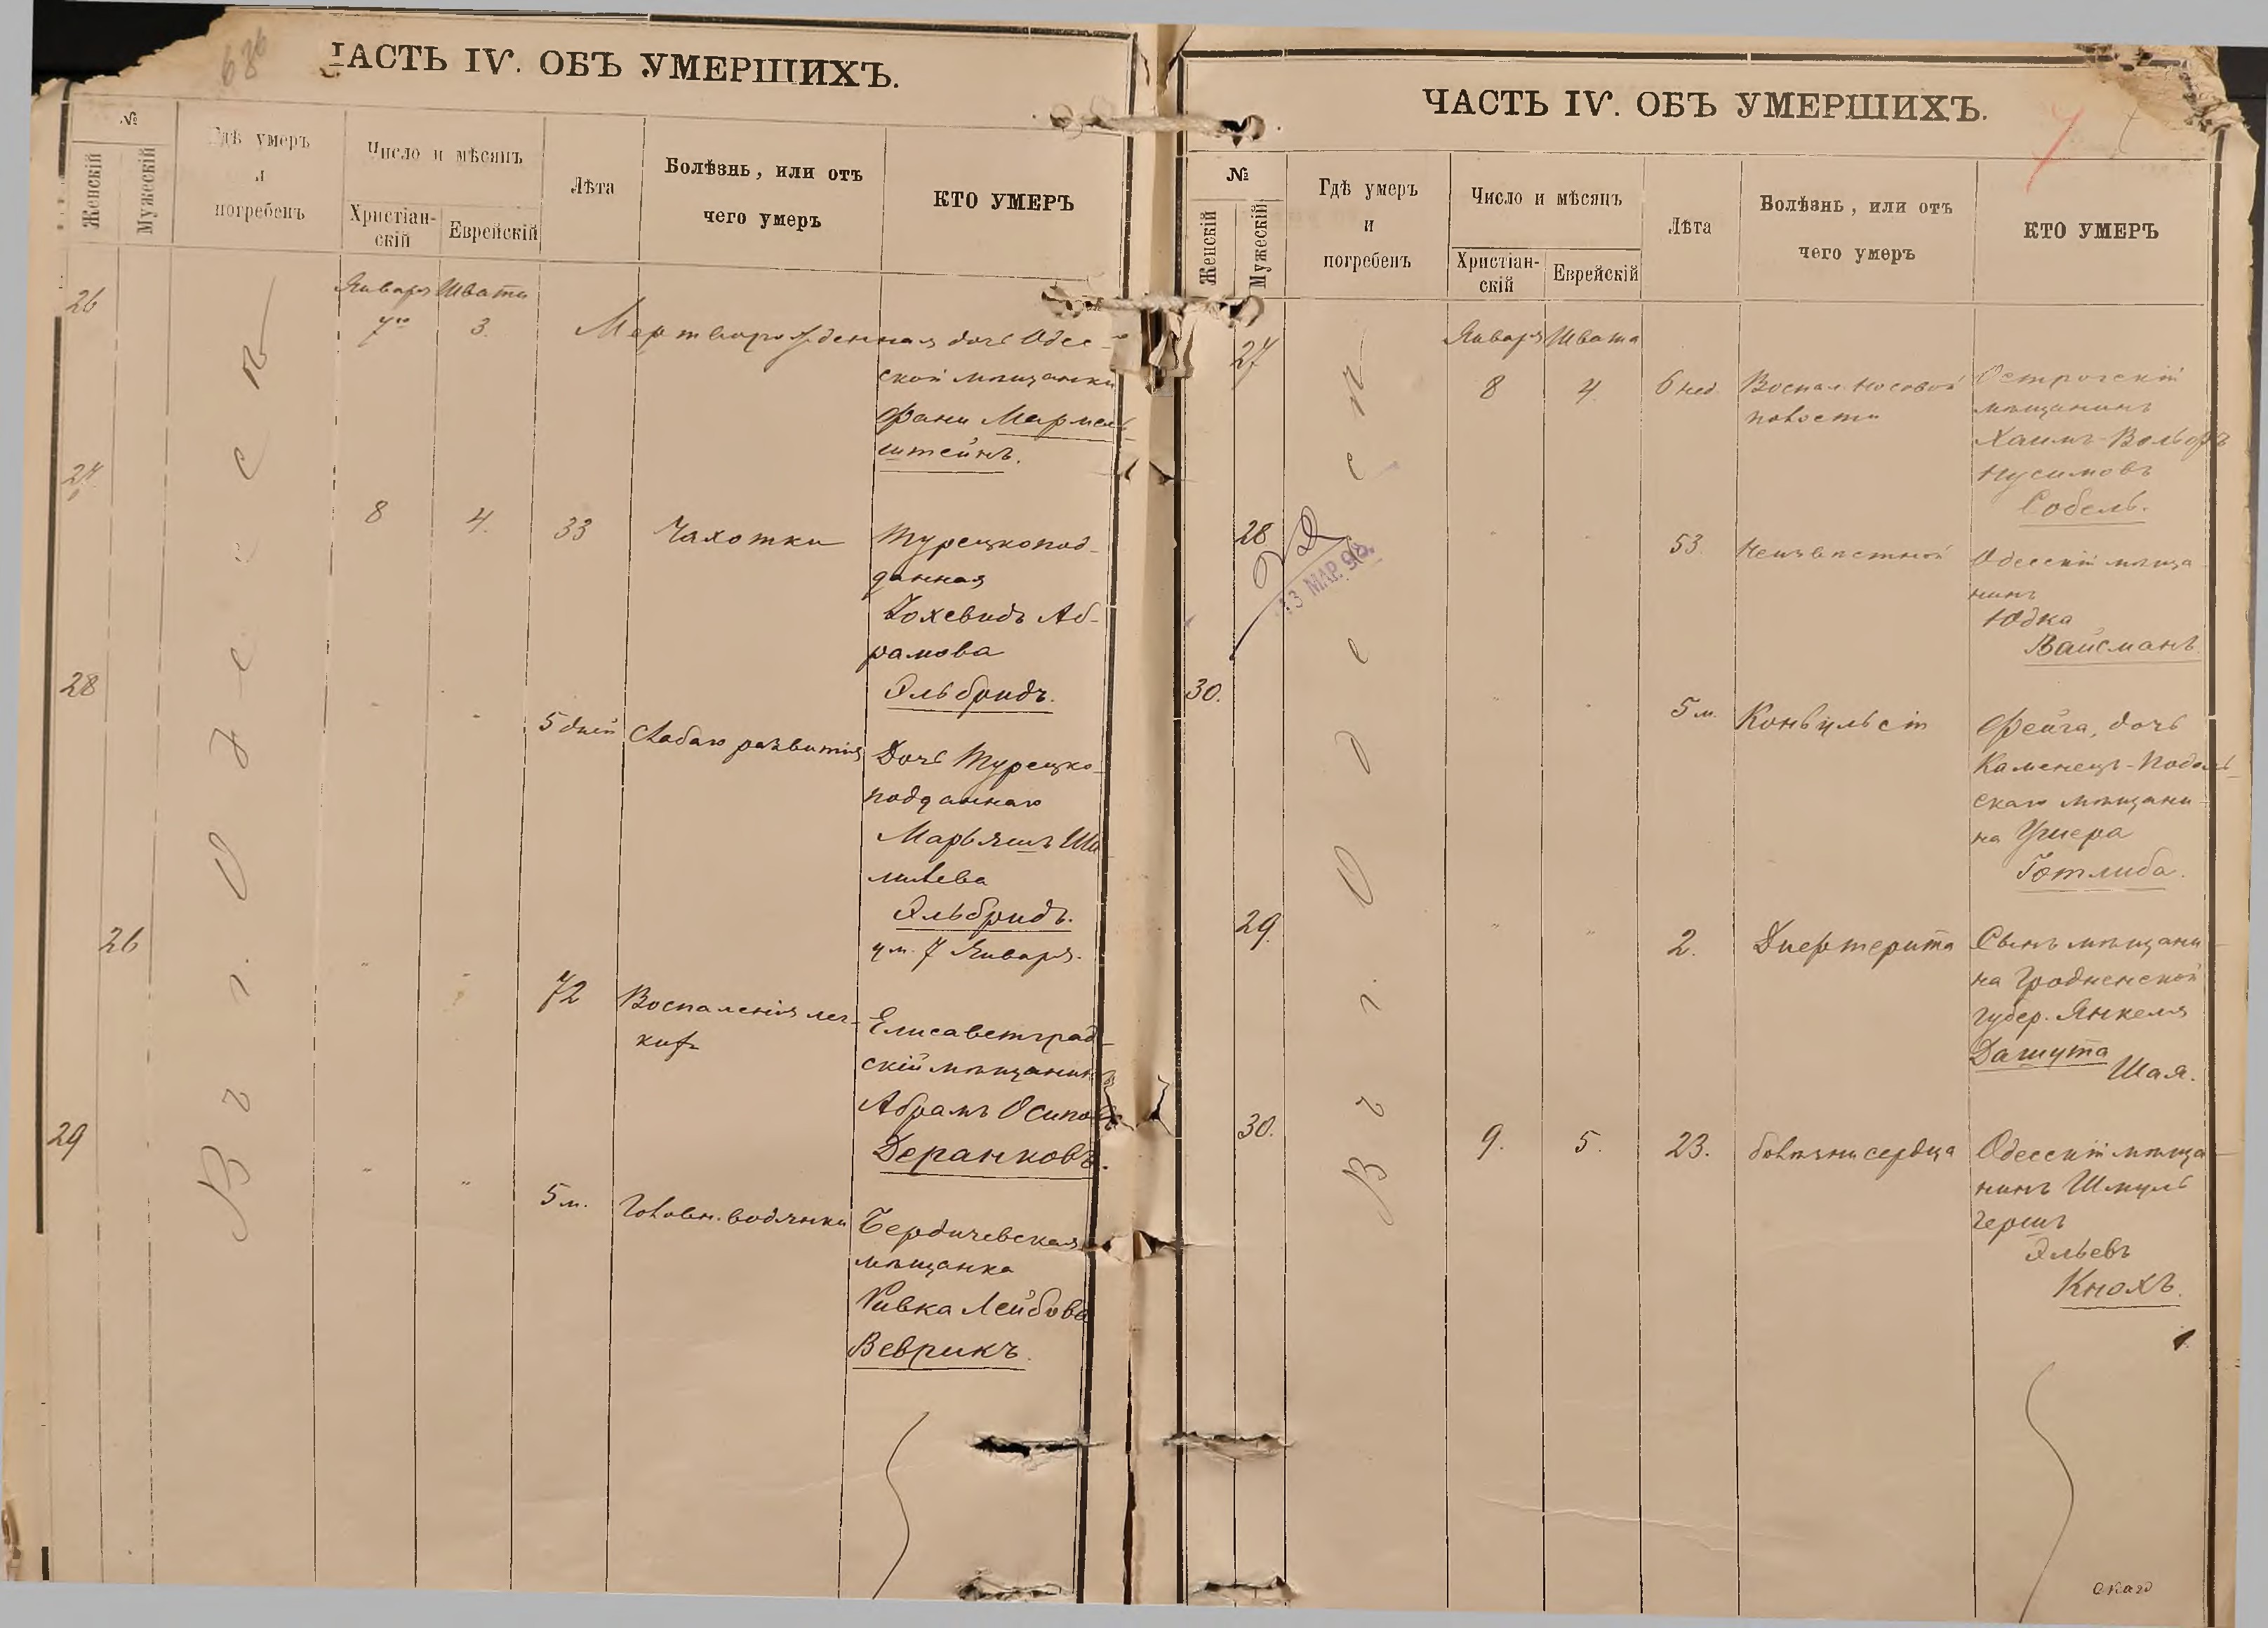 ЧАСТЬ IV. ОБЪ УМЕРШИХЪ.
№
Женскій
Мужескій
Гдѣ умеръ
и
погребенъ
Число и мѣсяцъ
Христіан-
скій
Еврейскій
Лѣта
Болѣзнь, или отъ
чего умеръ
КТО УМЕРЪ
Въ г. Одессѣ
26
Января Швата
7го 3. Мертворожденная дочь Одес-
ской мѣщанки
Фани Мармель-
штейнъ.
27
8 4. 33 Чахотки Турецкопод-
данная
Іохевидъ Аб-
рамова
Эльбридъ.
28
" " 5 дней Слабаго развитія Дочь Турецко-
подданнаго
Марьяшъ Шм
милева
Эльбридъ.
ум. 7 Января.
26
" " 72 Воспаленія лег- Елисаветград-
кихъ скій мѣщанинъ
Абрамъ Осиповъ
Деранковъ.
29
" " 5 м. Головн. водянки Бердичевская
мѣщанка
Ривка Лейбова
Веврикъ.
ЧАСТЬ IV. ОБЪ УМЕРШИХЪ.
7
№
Женскій
Мужескій
Гдѣ умеръ
и
погребенъ
Число и мѣсяцъ
Христіан-
скій
Еврейскій
Лѣта
Болѣзнь, или отъ
чего умеръ
КТО УМЕРЪ
Въ г. Одессѣ
27 Января Швата
8 4. 6 нед. Воспал. носовой Острогскій
полости мѣщанинъ
Хаимъ-Вольфъ
Нусимовъ
Собель.
28 " " 53. Неизвѣстной Одесскій мѣща-
нинъ
Юдка
Вайсманъ.
13 МАР. 98.
30. " " 5 м. Конвульсій Фейга, дочь
Каменецъ-Подоль-
скаго мѣщани-
на Ушера
Готлиба.
29. " " 2. Дифтерита Сынъ мѣщани-
на Гродненской
губер. Янкеля
Дашута
Шая.
30. 9. 5. 23. болѣзни сердца Одесскій мѣща-
нинъ Шмуль
Гершъ
Эльевъ
Кнохъ.
скаго